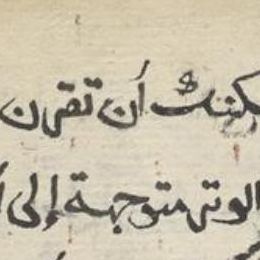 يمكنك أن تقرن
الوتر متوجهة إلى